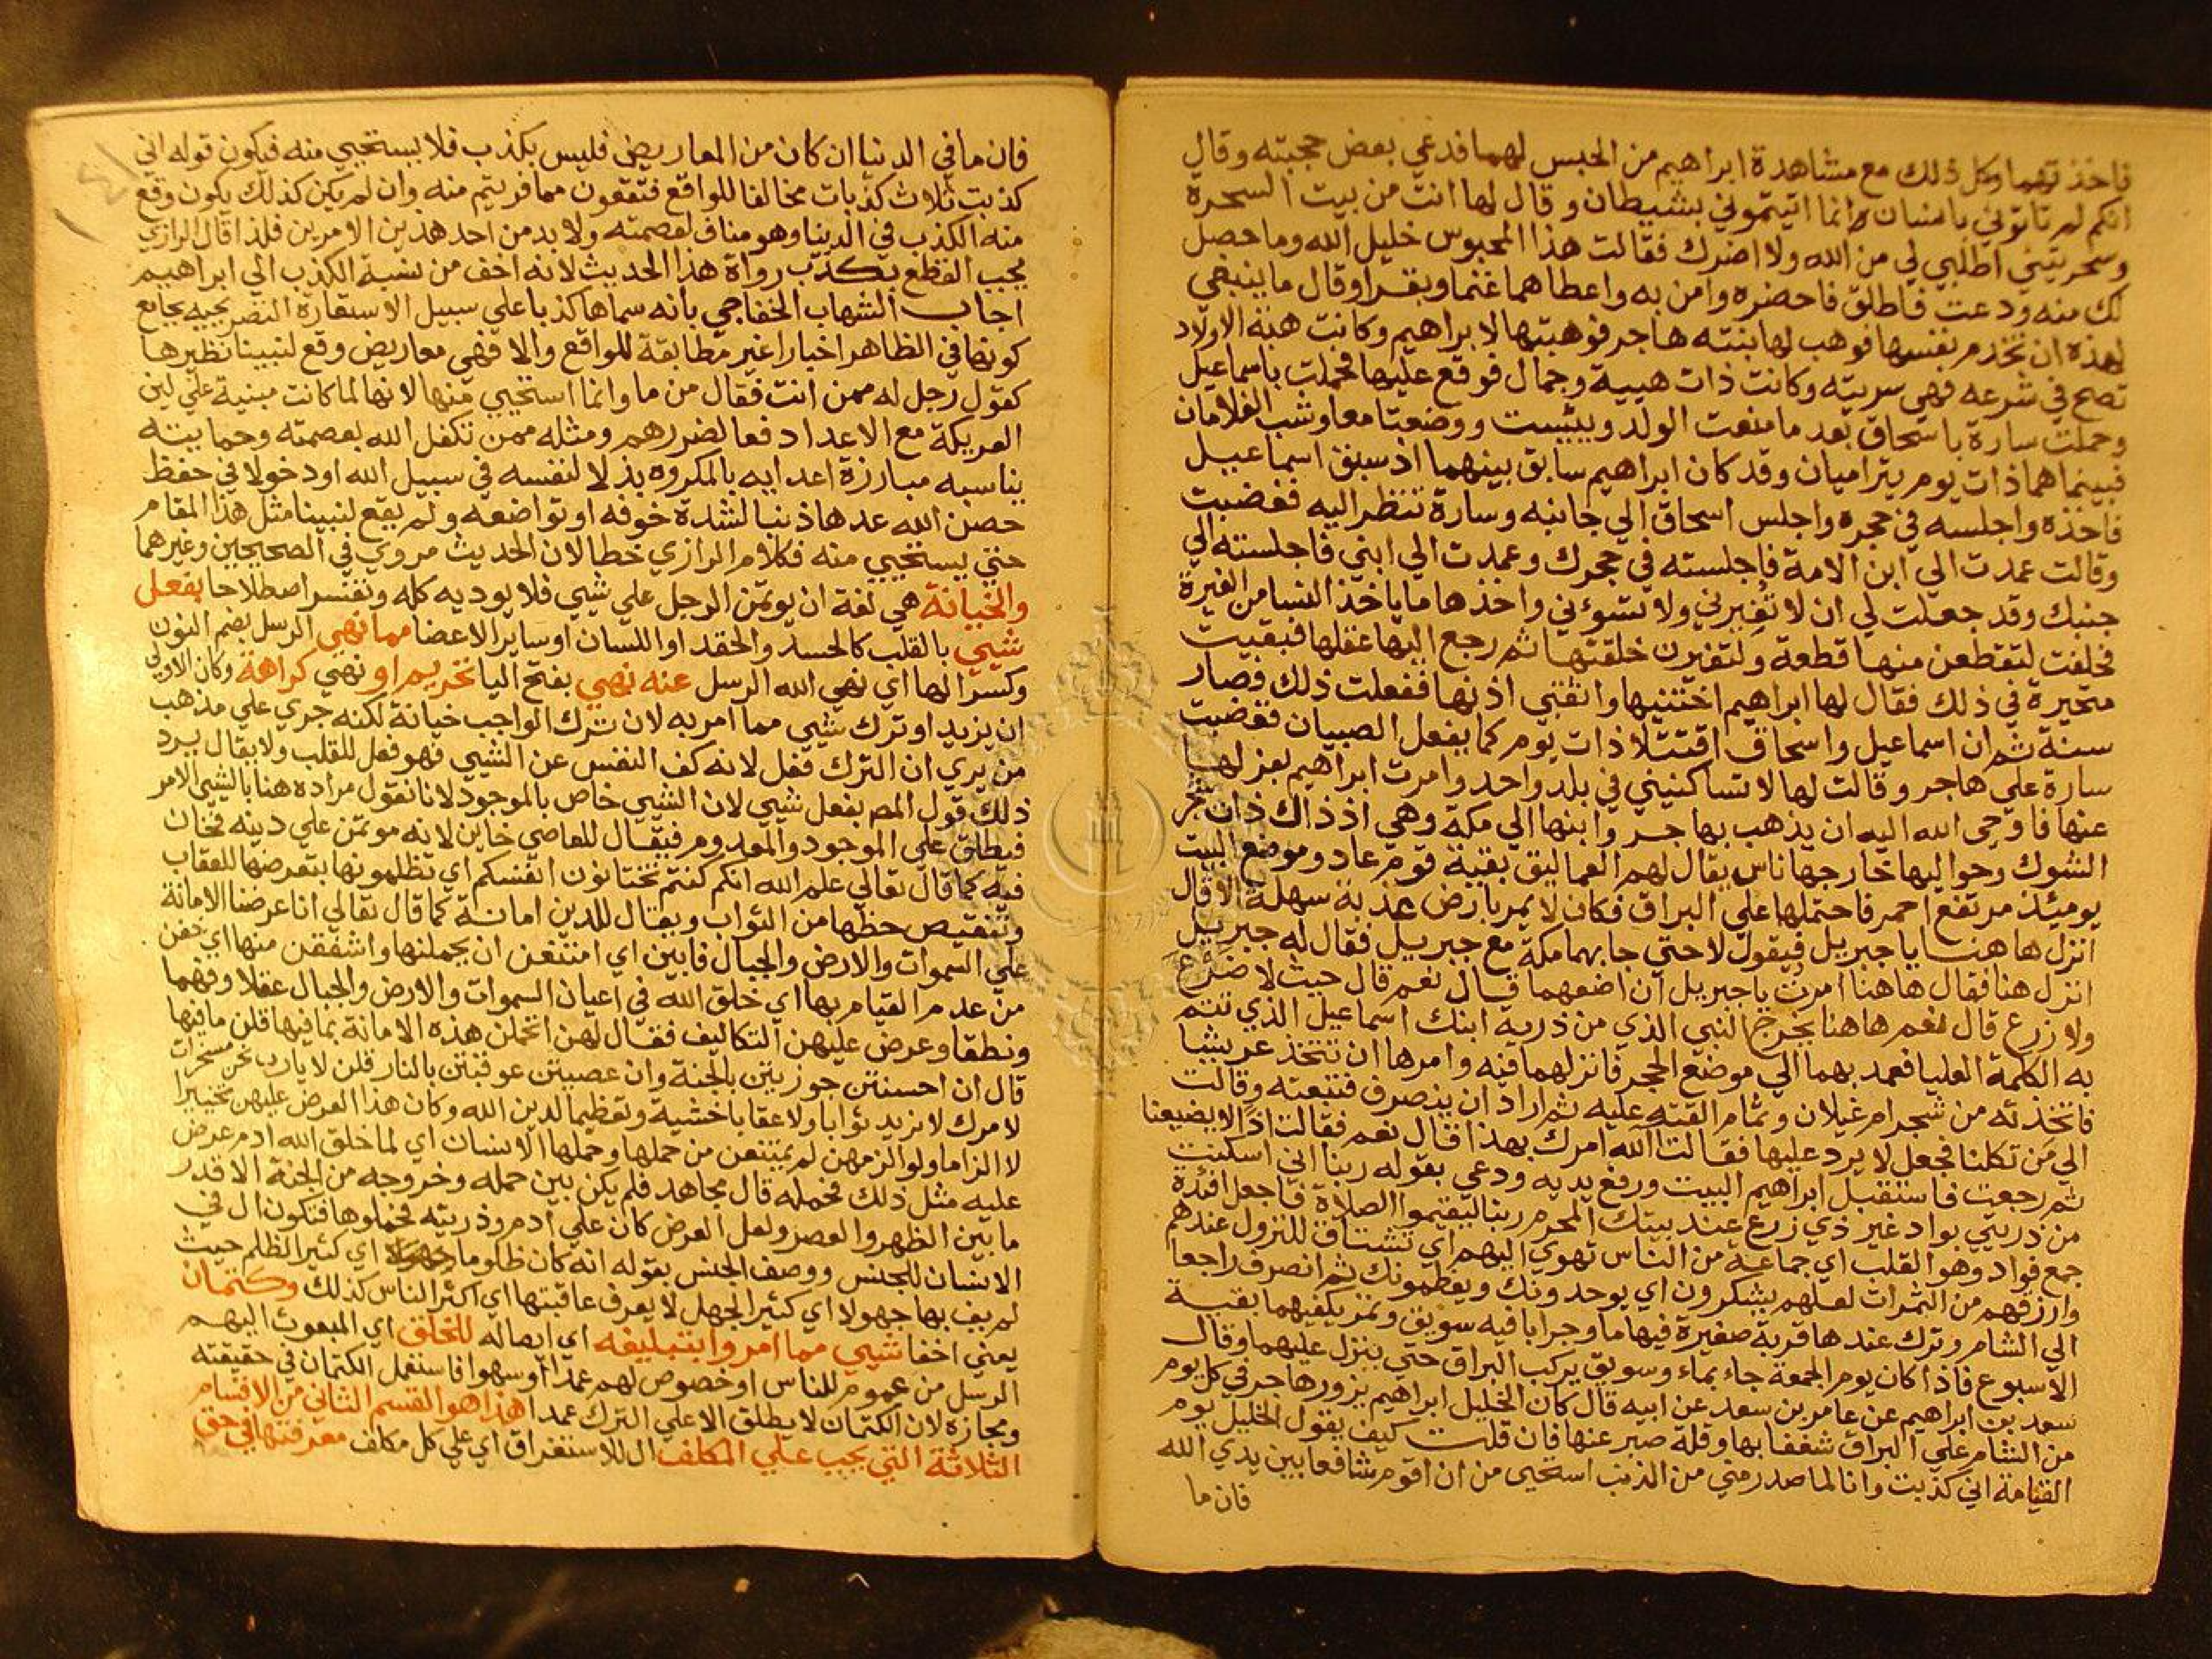 فاخذتهما وكل ذلك مع مشاهدة ابراهيم من الحبس لهما فدعي بعض حجبته وقال
انكم لم تاتوني بانسان وانما اتيتموني بشيطان وقال لها انت من بيت السحرة
وسحرتيني اطلبي لي من الله ولا اضرك فقالت هذا المحبوس خليل الله وما حصل
لك منه ودعت فاطلق فاحضره وامن به واعطاهما غنما وبقرا وقال ما ينبغي
لهذه ان تخدم نفسها فوهب لها بنته هاجر فوهبتها لابراهيم وكانت هبة الاولاد
تصح في شرعه فهي سريته وكانت ذات هيبة وجمال فوقع عليها فحملت باسماعيل
وحملت سارة باسحاق بعد ما منعت الولد ويئست ووضعتا معا وشب الغلامان
فبينما هما ذات يوم يتراميان وقد كان ابراهيم سابق بينهما اذ سبق اسماعيل
فاخذه واجلسه في حجره واجلس اسحاق الي جانبه وسارة تنظر اليه فغضبت
وقالت عمدت الي ابن الامة فاجلسته في حجرك وعمدت الي ابني فاجلسته الي
جنبك وقد جعلت لي ان لا تغيرني ولا تسوءني واخذها ما ياخذ النسا من الغيرة
فحلفت لتقطعن منها قطعة ولتغيرن خلقتها ثم رجع اليها عقلها فبقيت
متحيرة في ذلك فقال لها ابراهيم اختنيها واثقبي اذنها ففعلت ذلك فصار
سنة ثم ان اسماعيل واسحاق اقتتلا ذات يوم كما يفعل الصبيان فغضبت
سارة علي هاجر وقالت لها لا تساكنيني في بلد واحد وامرت ابراهيم بعزلها
عنها فاوحي الله اليه ان يذهب بهاجر وابنها الي مكة وهي اذ ذاك ذات شجر
الشوك وحواليها خارجها ناس يقال لهم العماليق بقية قوم عاد وموضع البيت
يومئذ مرتفع احمر فاحتملها علي البراق فكان لا يمر بارض عذبة سهلة الا قال
انزل هاهنا يا جبريل فيقول لا حتي جا بهما مكة مع جبريل فقال له جبريل
انزل هنا فقال هاهنا امرت يا جبريل ان اضعهما قال نعم قال حيث لا ضرع
ولا زرع قال نعم هاهنا يخرج النبي الذي من ذرية ابنك اسماعيل الذي تتم
به الكلمة العليا فعمد بهما الي موضع الحجر فانزلهما فيه وامرها ان تتخذ عريشا
فاتخذته من شجر ام غيلان وثمام القته عليه ثم اراد ان ينصرف فتبعته وقالت
الي من تكلنا فجعل لا يرد عليها فقالت الله امرك بهذا قال نعم فقالت اذا لا يضيعنا
ثم رجعت فاستقبل ابراهيم البيت ورفع يديه ودعي بقوله ربنا اني اسكنت
من ذريتي بواد غير ذي زرع عند بيتك المحرم ربنا ليقيموا الصلاة فاجعل افئدة
جمع فواد وهو القلب اي جماعة من الناس تهوي اليهم اي تشتاق للنزول عندهم
وارزقهم من الثمرات لعلهم يشكرون اي يوحدونك ويعظمونك ثم انصرف راجعا
الي الشام وترك عندها قربة صغيرة فيها ما وجرابا فيه سويق وتمر يكفيهما بقية
الاسبوع فاذا كان يوم الجمعة جاء بماء وسويق يركب البراق حتي ينزل عليهما وقال
سعد بن ابراهيم عن عامر بن سعد عن ابيه قال كان الخليل ابراهيم يزور هاجر في كل يوم
من الشام علي البراق شغفا بها وقلة صبر عنها فان قلت كيف يقول الخليل يوم
القيامة اني كذبت وانا لما صدر مني من الذنب استحيى من ان اقوم شافعا بين يدي الله
فان ما
فان ما في الدنيا ان كان من المعاريض فليس بكذب فلا يستحيي منه فيكون قوله اني
كذبت ثلاث كذبات مخالفا للواقع فتقعون مما فريتم منه وان لم يكن كذلك يكون وقع
منه الكذب في الدنيا وهو مناف لعصمته ولا بد من احد هذين الامرين فلذا قال الرازي
يجب القطع بكذب رواة هذا الحديث لانه اخف من نسبة الكذب الي ابراهيم
اجاب الشهاب الخفاجي بانه سماها كذبا علي سبيل الاستعارة بجامع
كونها في الظاهر اخبارا غير مطابقة للواقع والا فهي معاريض وقع لنبينا نظيرها
كقول رجل له ممن انت فقال من ما وانما استحيي منها لانها لما كانت مبنية علي لين
العريكة مع الاعداد دفعا لضررهم ومثله ممن تكفل الله بعصمته وحمايته
يناسبه مبارزة اعدايه بالمكروه بذلا لنفسه في سبيل الله او دخولا في حفظ
حصن الله عدها ذنبا لشدة خوفه او تواضعه ولم يقع لنبينا مثل هذا المقام
حتي يستحيي منه فكلام الرازي خطا لان الحديث مروي في الصحيحين وغيرهما
والخيانة هي لغة ان يوتمن الرجل علي شيي فلا يوديه كله وتفسر اصطلاحا بفعل
شيي بالقلب كالحسد والحقد او اللسان او ساير الاعضا مما نهي الرسل بضم النون
وكسر الها اي نهي الله الرسل عنه نهي بفتح اليا تحريم او نهي كراهة وكان الاولي
ان يزيد او ترك شيي مما امر به لان ترك الواجب خيانة لكنه جري علي مذهب
من يري ان الترك فعل لانه كف النفس عن الشيي فهو فعل للقلب ولا يقال يرد
ذلك قول المص بفعل شيي لان الشيي خاص بالموجود لانا نقول مراده هنا بالشيي الامر
فيطلق علي الموجود والمعدوم فيقال للعاصي خاين لانه موتمن علي دينه فخان
فيه كما قال تعالي علم الله انكم كنتم تختانون انفسكم اي تظلمونها بتعرضها للعقاب
وتنقيص حظها من الثواب ويقال للدين امانة كما قال تعالي انا عرضنا الامانة
علي السموات والارض والجبال فابين اي امتنعن ان يحملنها واشفقن منها اي خفن
من عدم القيام بها اي خلق الله في اعيان السموات والارض والجبال عقلا وفهما
ونطقا وعرض عليهن التكاليف فقال لهن اتحملن هذه الامانة بما فيها قلن ما فيها
قال ان احسنتن جوزيتن بالجنة وان عصيتن عوقبتن بالنار قلن لا يا رب نحن مسخرات
لامرك لا نريد ثوابا ولا عقابا خشية وتعظيما لدين الله وكان هذا العرض عليهن تخييرا
لا الزاما ولو الزمهن لم يمتنعن من حملها وحملها الانسان اي لما خلق الله ادم عرض
عليه مثل ذلك فحمله قال مجاهد فلم يكن بين حمله وخروجه من الجنة الا قدر
ما بين الظهر والعصر ولعل العرض كان علي ادم وذريته فحملوها فتكون ال في
الانسان للجنس ووصف الجنس بقوله انه كان ظلوما اي كثير الظلم حيث
لم يف بها جهولا اي كثير الجهل لا يعرف عاقبتها اي اكثر الناس كذلك وكتمان
يعني اخفا شيي مما امروا بتبليغه اي ايصاله للخلق اي المبعوث اليهم
الرسل من عموم للناس او خصوص لهم عمدا او سهوا فاستعمل الكتمان في حقيقته
ومجازه لان الكتمان لا يطلق الا علي الترك عمدا هذا هو القسم الثاني من الاقسام
الثلاثة التي يجب علي المكلف ال للاستغراق اي علي كل مكلف معرفتها في حق